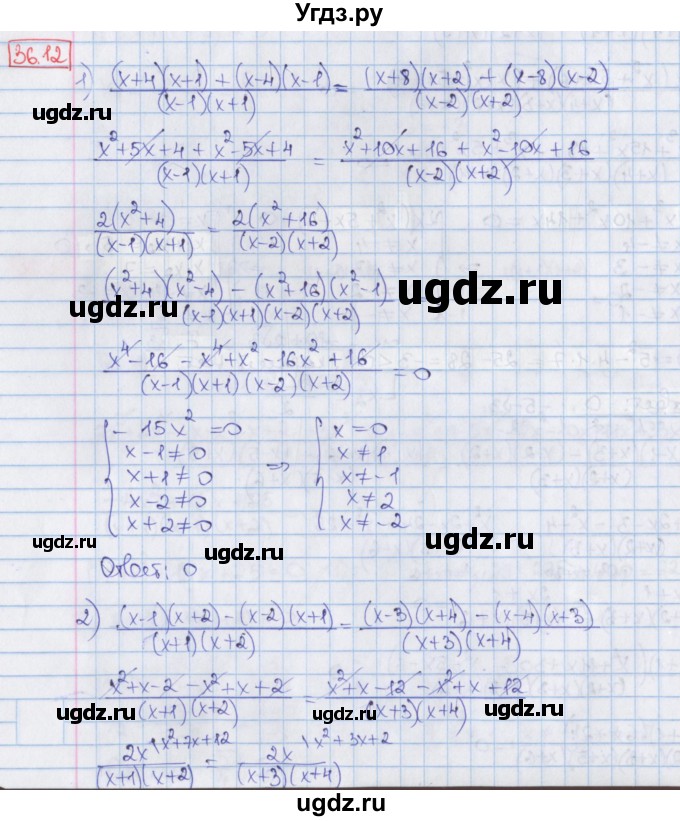 Угдз.ру
36.12
1) ((x+4)(x+1) + (x-4)(x-1))/((x-1)(x+1)) = ((x+8)(x+2) + (x-8)(x-2))/((x-2)(x+2))
(x²+5x+4 + x²-5x+4)/((x-1)(x+1)) = (x²+10x+16 + x²-10x+16)/((x-2)(x+2))
2(x²+4)/((x-1)(x+1)) = 2(x²+16)/((x-2)(x+2))
((x²+4)(x²-4) - (x²+16)(x²-1))/((x-1)(x+1)(x-2)(x+2))
ugdz.ru ugdz.ru
(x⁴-16 - x⁴+x²-16x²+16)/((x-1)(x+1)(x-2)(x+2)) = 0
-15x²=0 x=0
x-1≠0 x≠1
x+1≠0 ⇒ x≠-1
x-2≠0 x≠2
x+2≠0 x≠-2
ugdz.ru ugdz.ru
Ответ: 0
2) ((x-1)(x+2) - (x-2)(x+1))/((x+1)(x+2)) = ((x-3)(x+4) - (x-4)(x+3))/((x+3)(x+4))
(x²+x-2 - x²+x+2)/((x+1)(x+2)) = (x²+x-12 - x²+x+12)/((x+3)(x+4))
ugdz.ru ugdz.ru
2x\x²+7x+12/((x+1)(x+2)) = 2x\x²+3x+2/((x+3)(x+4))
ugdz.ru